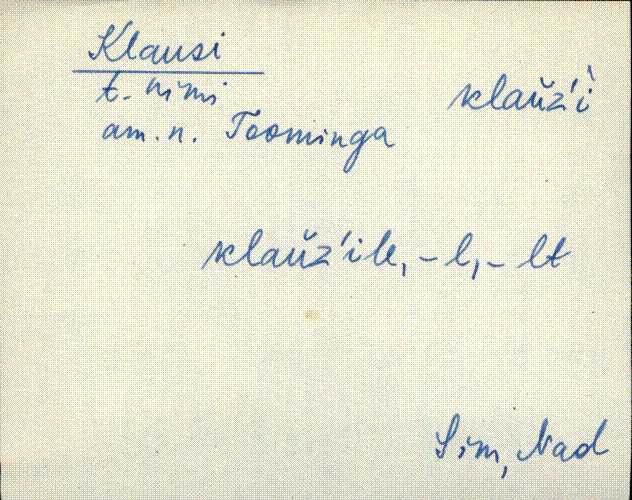 Klausi
t. nimi klaŭz'i̇̀
am. n. Toominga
klaŭz'ile, -l, -lt
Sim, Nad